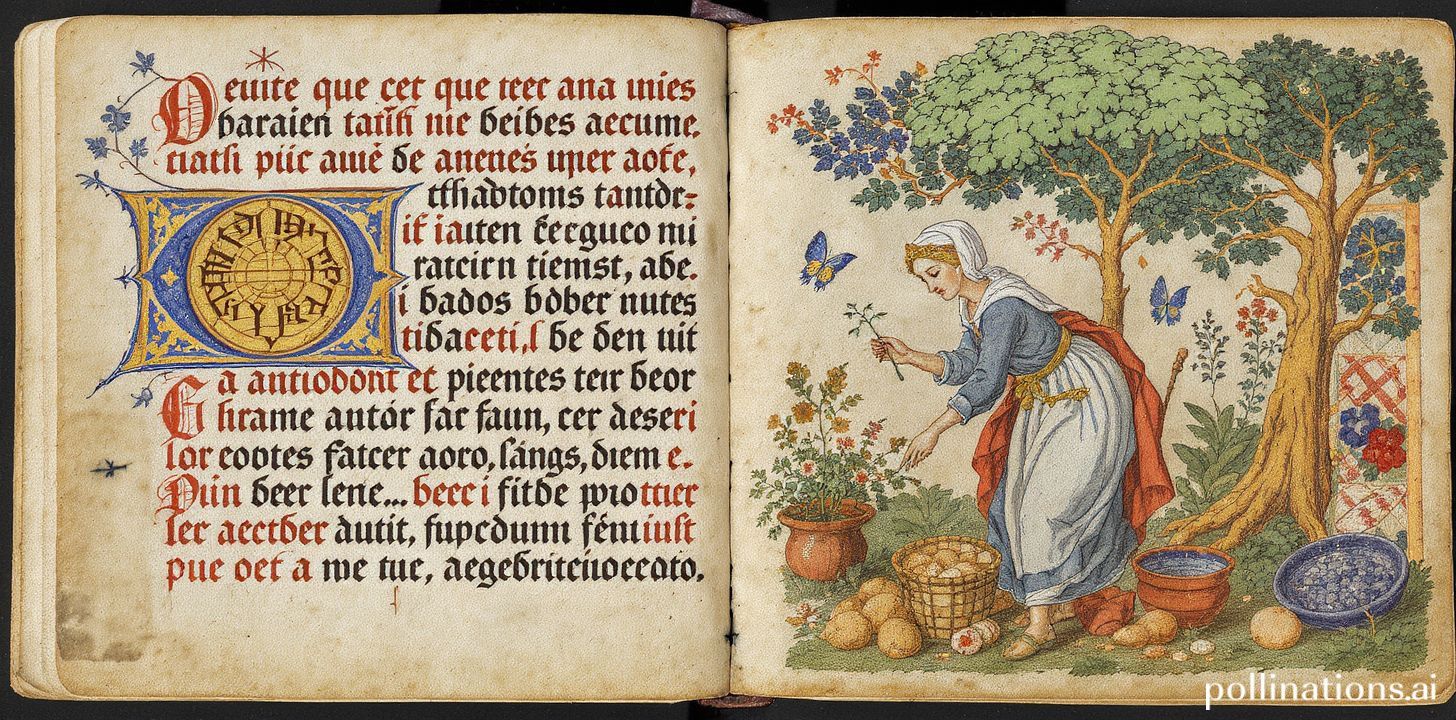 Deuite que cet que teet ana unies
baraien tañh nie beibes aecume.
tiatsi piic auıē de anenes uņer aofe,
tthadtoms tantdr:
if iaıten kecgueo mi
ratcirn tiemst, abe.
i bados bober nutes
tidaceti,l be den uit
Ca antiodont et pieentes teir beor
hrame autór sar faun, cer deseri
lor eootes fatcer aoro, sángs, diem e.
Piin beer lene... beec i fitde
ser aectber autit, supcdunn féniuist
pue oet a me tue,
pollinations.ai